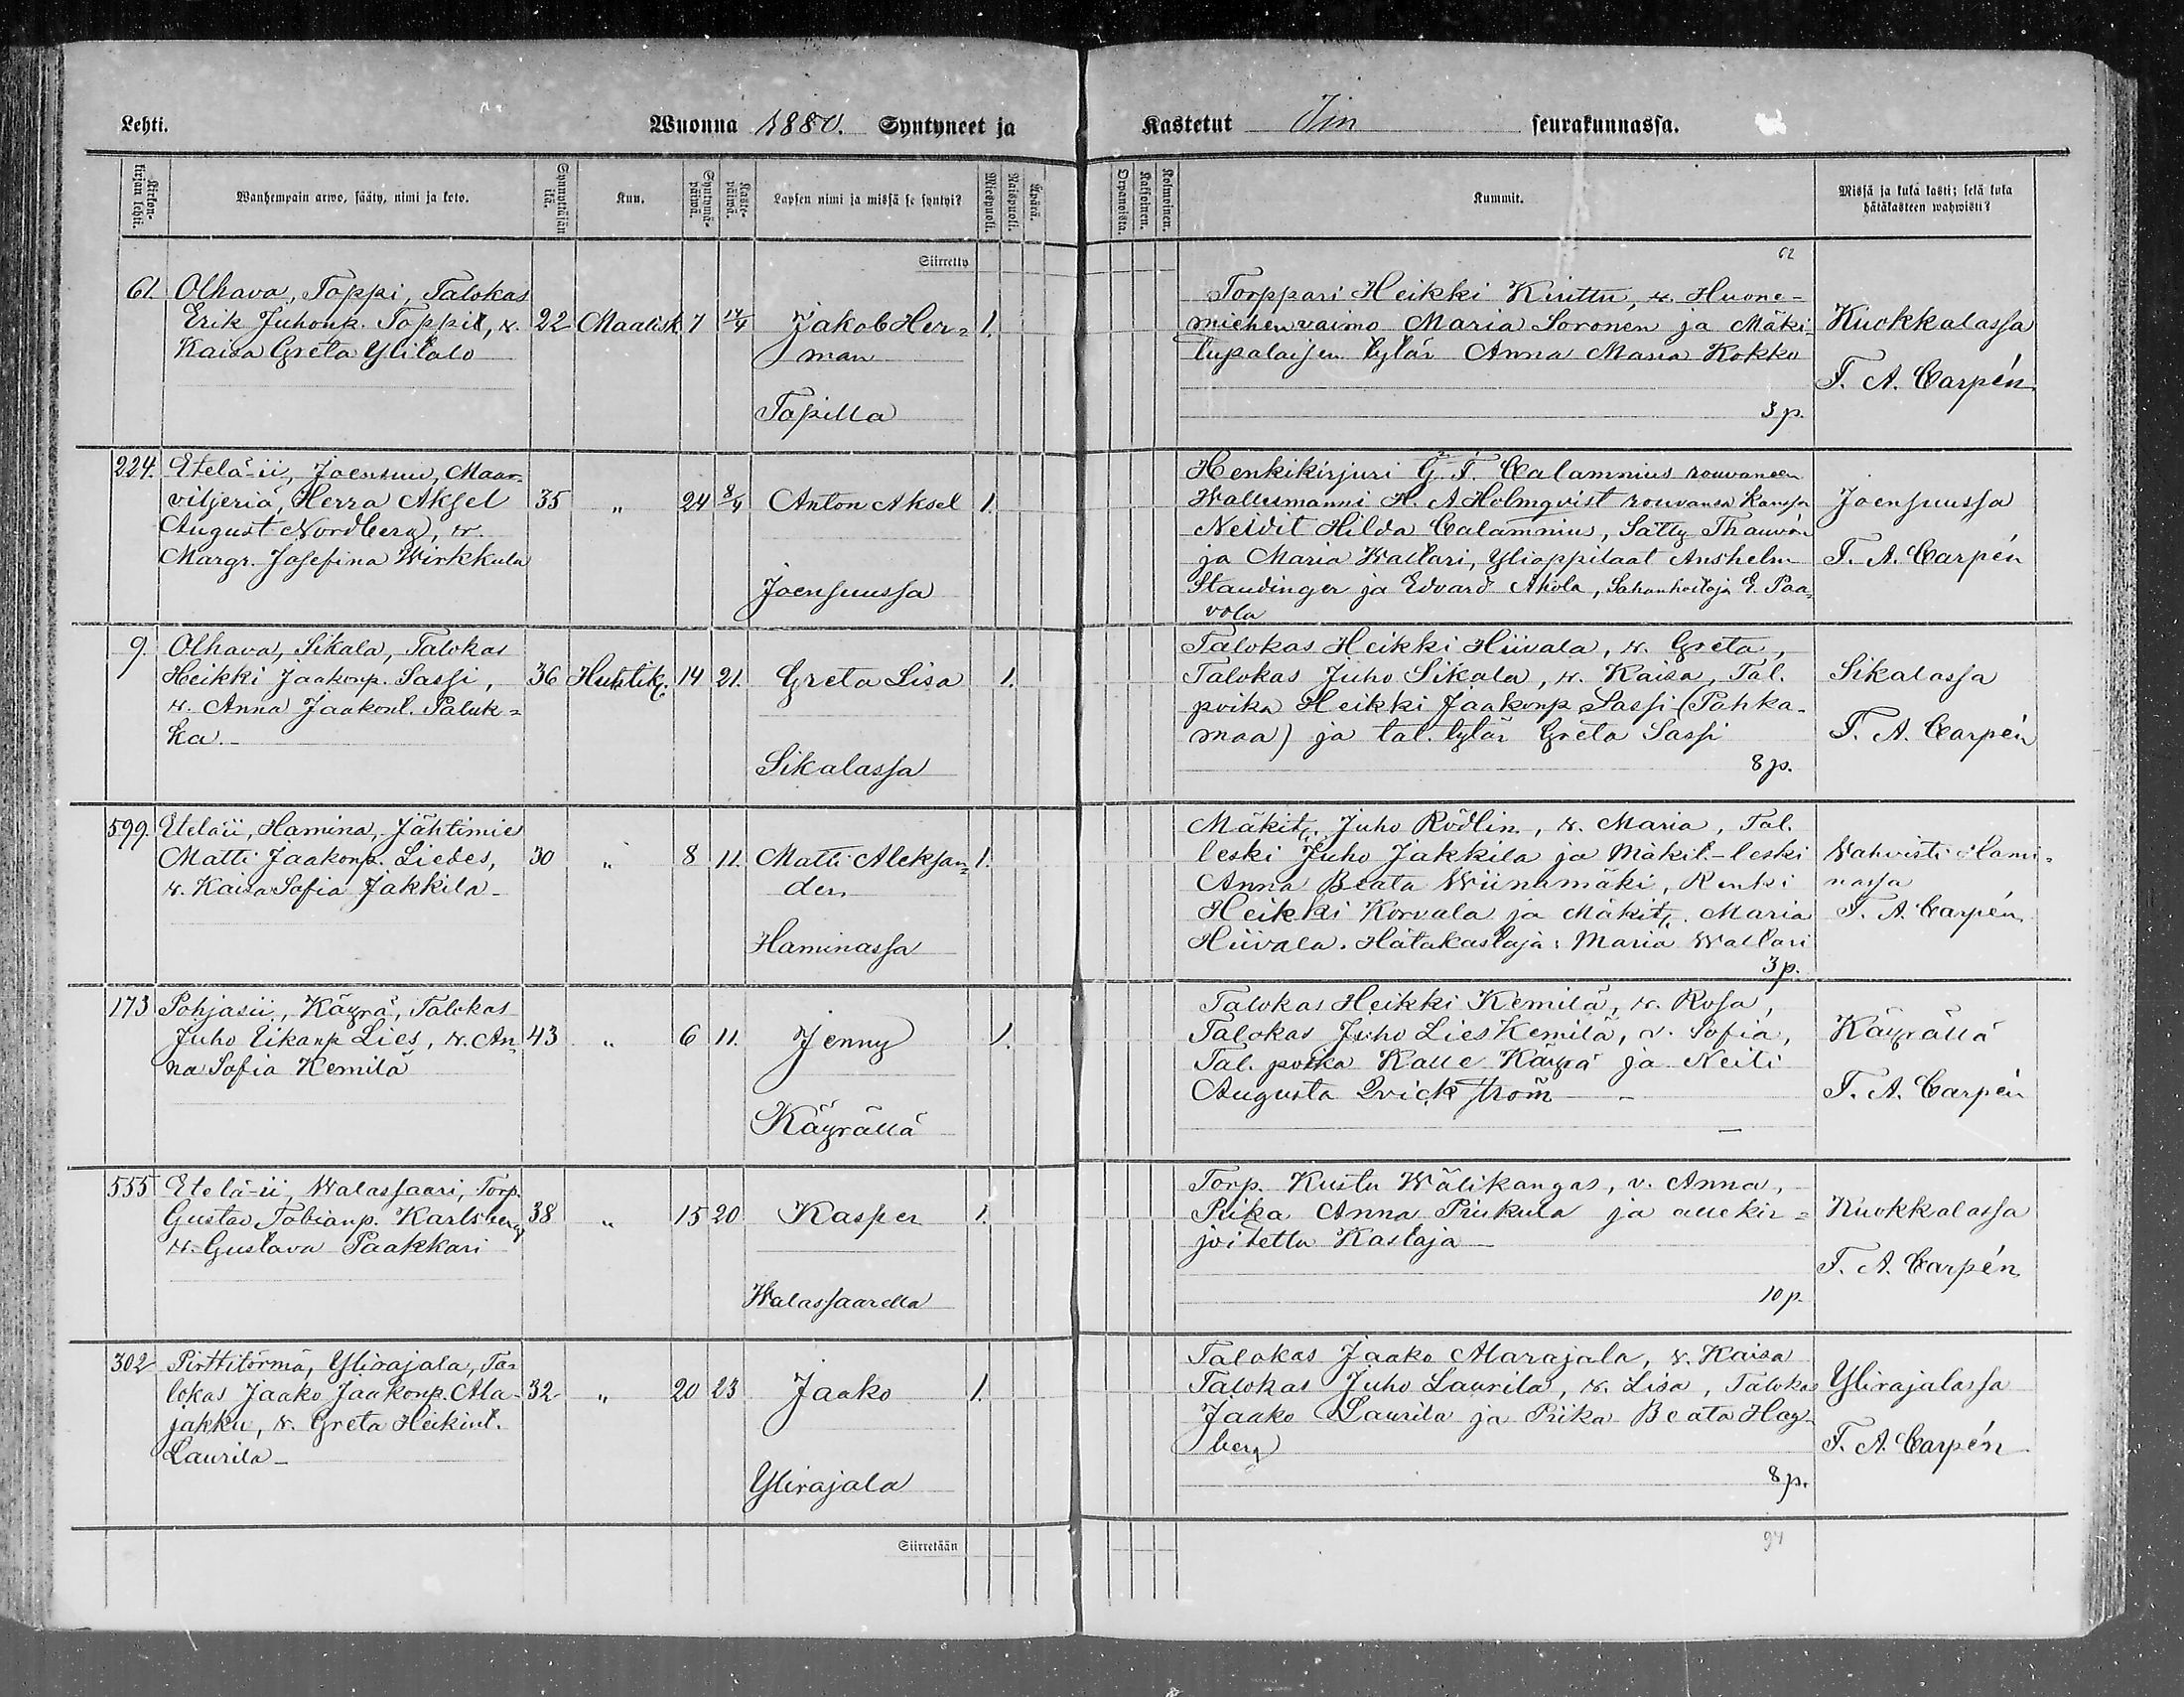 Lehti.
Wuonna 1880. Syntyneet ja
Kirkon-
kirjan lehti.
Wanhempain arwo, sääty, nimi ja koto.
Synnyttäjän
ikä.
Kuu.
Syntymä-
päivä.
Kaste-
päivä.
Lapsen nimi ja missä se syntyi?
Miespuoli.
Naispuoli.
Äpärä.
Siirretty
61. Olhava, Tappi, Talokas
Erik Juhonp. Tappil, w. 22 Maalisk. 7 17/4 Jakob Her= 1.
Kaisa Greta Ylitalo man
Tapilla
224. Etelä-ii, Joensuu, Maan-
viljeriä, Herra Aksel 35 " 24 8/4 Anton Aksel 1.
August Nordberg, w.
Margr. Josefina Wirkkula
Joensuussa
9. Olhava, Sikala, Talokas
Heikki Jaakonp. Sassi, 36 Huhtik. 14 21. Greta Lisa 1.
w. Anna Jaakont. Paluk=
ka.
Sikalassa
599. Eteläii, Hamina, Jähtimies
Matti Jaakonp. Liedes, 30 " 8 11. Matti Aleksan= 1.
w. Kaisa Sofia Jakkila der
Haminassa
173 Pohjasii, Käyrä, Talokas
Juho Eikanp Lies, w. An 43 " 6 11. Jenny 1.
na Sofia Kemilä
Käyrällä
555 Etelä-ii, Walassaari, Torp.
Gustav Tobianp. Karlsberg 38 " 15 20 Kasper 1.
w. Gustava Paakkari
Walassaarella
302 Pirttitörmä, Ylirajala, Ta-
lokas Jaako Jaakonp. Ala- 32 " 20 23 Jaako 1.
jakku, w. Greta Heikint.
Laurila
Ylirajala
Siirretään
Kastetut Iin seurakunnassa.
Orpanoista.
Kaksoinen.
Kolmoinen.
Kummit.
Missä ja kuka kasti; sekä kuka
hätäkasteen wahwisti?
62
Torppari Heikki Kurttu, w. Huone-
miehen vaimo Maria Soronen ja Mäki- Kuokkalassa
tupalaisen tytär Anna Maria Kokko
T. A. Carpén
3 p.
Henkikirjuri G. F. Calamnius rouvaneen
Wallesmanni H. A Holmqvist rouvansa kanssa Joensuussa
Neidit Hilda Calamnius, Sätty Thauvón
ja Maria Wallari, Ylioppilaat Anshelm T. A. Carpén
Staudinger ja Edvard Ahola, Sahanhoitaja E. Paa-
vola
Talokas Heikki Hiivala, w. Greta,
Talokas Juho Sikala, w. Kaisa, Tal. Sikalassa
poika Heikki Jaakonp Sassi (Pahka-
maa) ja tal. tytär Greta Sassi T. A. Carpén
8 p.
Mäkit. Juho Rödlin, w. Maria, Tal.
leski Juho Jakkila ja Mäkit.-leski Wahvisti Hami=
Anna Beata Wiinamäki, Renki nassa
Heikki Korvala ja Mäkit. Maria T. A. Carpén
Hiivala. Hätäkastaja: Maria Wallari
3 p.
Talokas Heikki Kemilä, w. Rosa,
Talokas Juho Lies Kemilä, w. Sofia, Käyrällä
Tal. poika Kalle Käyrä ja Neiti
Augusta Qvickström T. A. Carpén
Torp. Kustu Wälikangas, v. Anna,
Piika Anna Piukula ja allekir= Kuokkalassa
joitettu Kastaja
T. A. Carpén
10 p.
Talokas Jaako Alarajala, w. Kaisa
Talokas Juho Laurila, w. Lisa, Talokas Ylirajalassa
Jaako Laurila ja Piika Beata Hag-
berg T. A. Carpén
8 p.
94